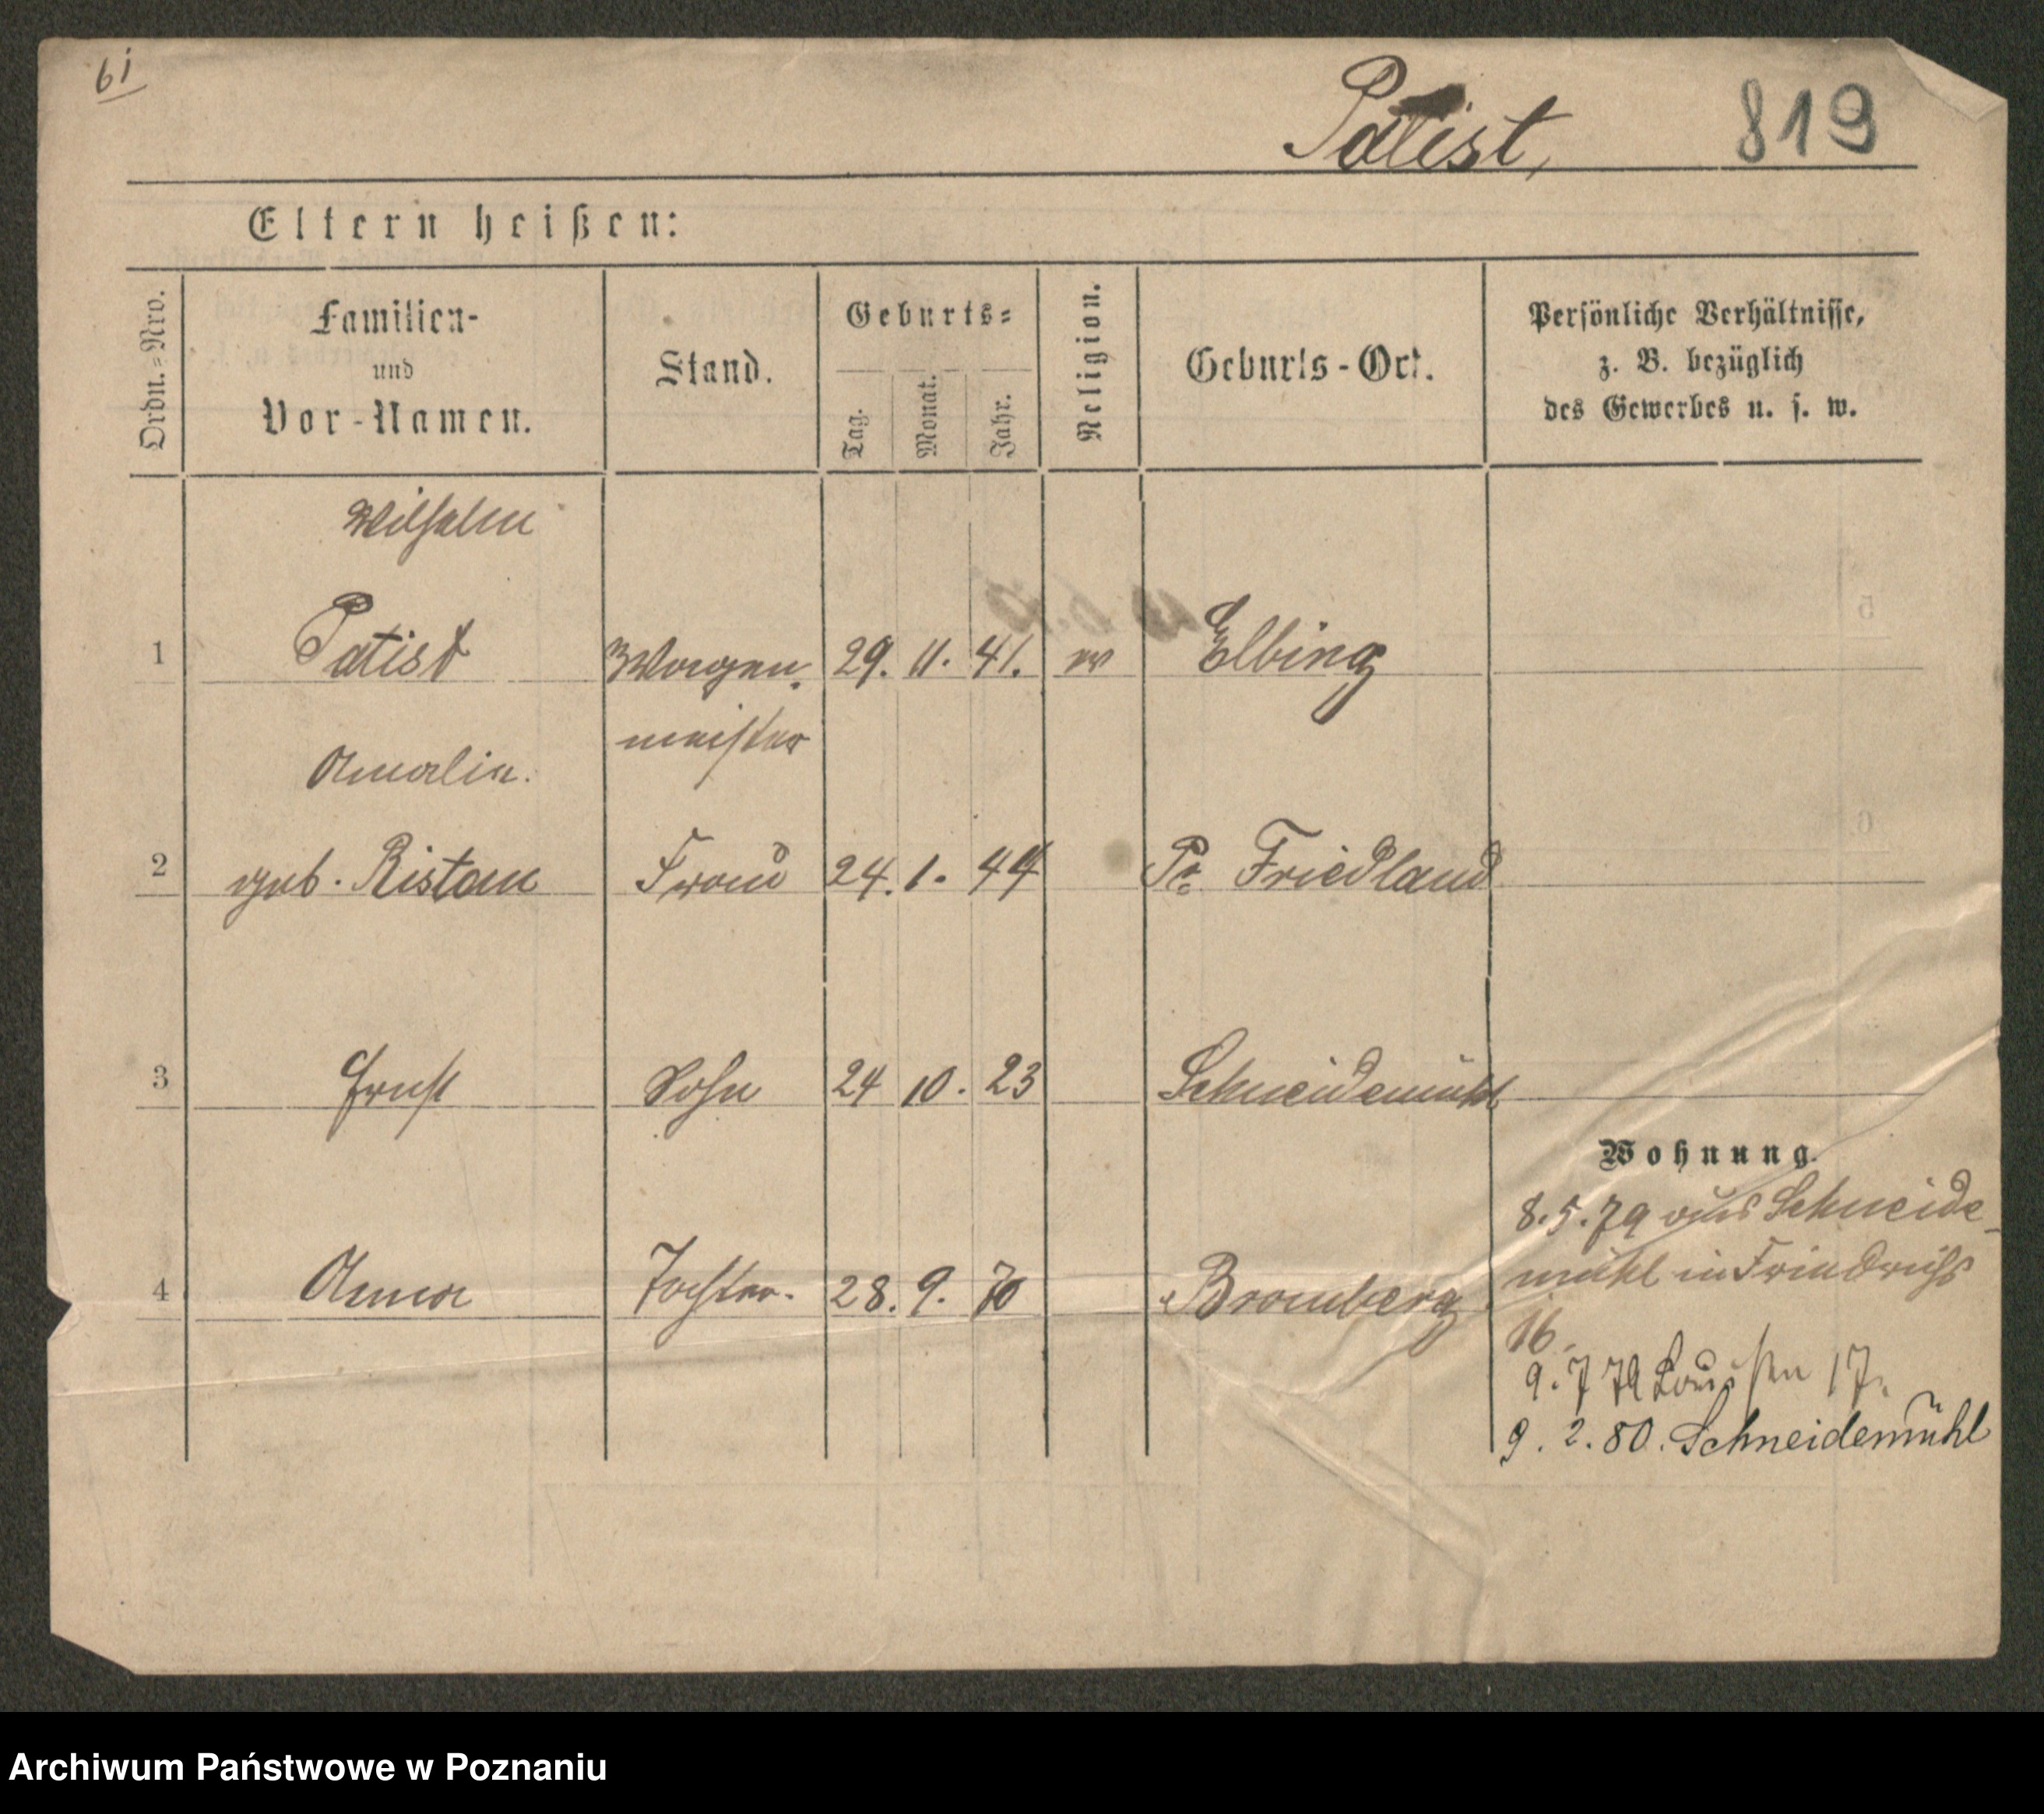 6i
Patist,
819
Eltern heißen:
Ordn.=Nro.
Familien-
und
Vor-Namen.
Stand.
Geburts=
Tag.
Monat.
Jahr.
Religion.
Geburts-Ort.
Persönliche Verhältnisse,
z. B. bezüglich
des Gewerbes u. s. w.
Wilhelm
1 Patist Wagen 29. 11. 41. ev Elbing
meister
Amalie.
2 geb. Ristau Frau 24. 1. 44 Pr. Friedland
3 Ernst Sohn 24 10. 23 Schneidemühl
Wohnung.
8.5.79 aus Schneide-
4 Anna Tochter. 28. 9. 70 Bromberg
mühl in Friedrichs
16.
9.7 79 Louisen 17.
9. 2. 80. Schneidemühl
Archiwum Państwowe w Poznaniu